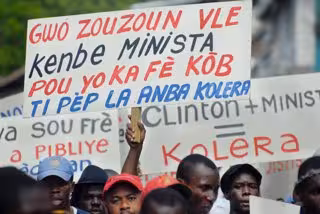 GWO ZOUZOUN VLE
kenbe MINISTA
POU YO KA FÈ KÒB
TI PÈP LA ANBA KOLERA
CLINTON + MINIS
=
KOLERA
SOU FRÈ
A PIBLIYE